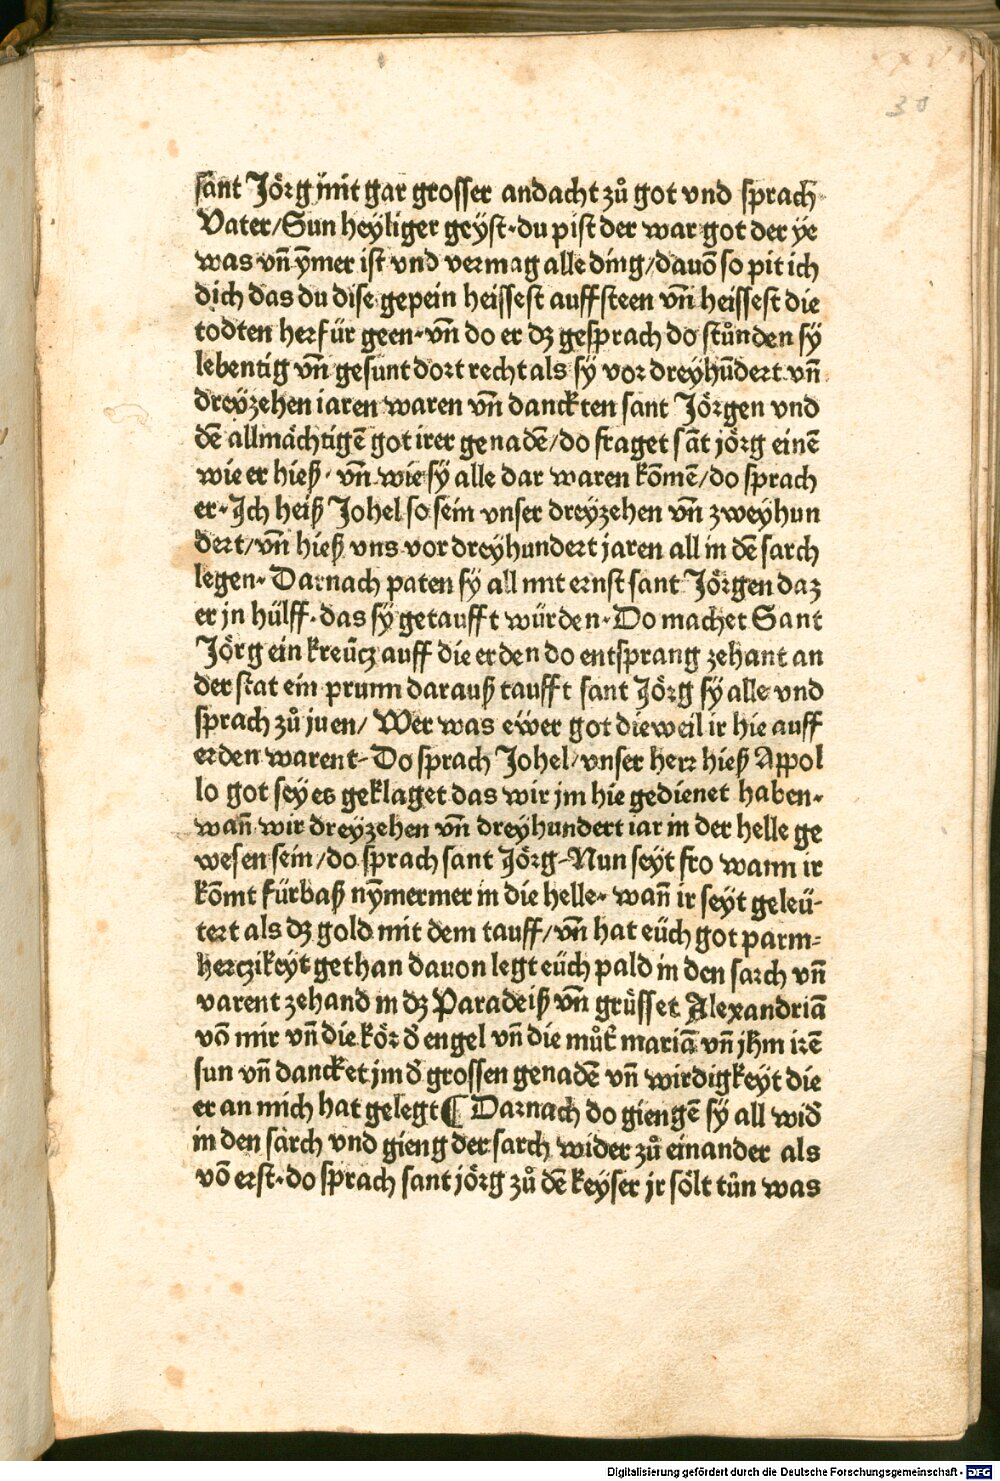 30
sant Jörg mit gar grosser andacht zů got vnd sprach
Vater/Sun heyliger geyst·du pist der war got der ye
was vn̄ ymer ist vnd vermag alle ding/dauō so pit ich
dich das du dise gepein heissest auffsteen vn̄ heissest die
todten herfür geen·vn̄ do er dz gesprach do stůnden sÿ
lebentig vn̄ gesunt dort recht als sÿ vor dreyhūdert vn̄
dreÿzehen iaren waren vn̄ danckten sant Jörgen vnd
dē allmächtigē got irer genadē/do fraget sāt jörg einē
wie er hieß· vn̄ wie sÿ alle dar waren kōmē/do sprach
er·Ich heiß Johel so sein vnser dreyzehen vn̄ zweyhun
dert/vn̄ hieß vns vor dreyhundert jaren all in dē sarch
legen·Darnach paten sÿ all mit ernst sant Jörgen daz
er jn hülff·das sÿ getaufft würden·Do machet Sant
Jörg ein kreücz auff die erden do entsprang zehant an
der stat ein prunn darauß taufft sant Jörg sÿ alle vnd
sprach zů juen/ Wer was eẅer got die weil ir hie auff
erden warent·Do sprach Johel/vnser herr hieß Appol
lo got sey es geklaget das wir jm hie gedienet haben·
wan̄ wir dreyzehen vn̄ dreyhundert iar in der helle ge
wesen sein/do sprach sant Jörg·Nun seyt fro wann ir
kōmt fürbaß nÿmermer in die helle· wan̄ ir seyt geleü-
tert als dz gold mit dem tauff/vn̄ hat eüch got parm-
herczikeyt gethan dauon legt eüch pald in den sarch vn̄
varent zehand in dz Paradeiß vn̄ grüsset Alexandriā
vō mir vn̄ die kör d̄ engel vn̄ die můt̄ mariā vn̄ jhm irē
sun vn̄ dancket jm d̄ grossen genadē vn̄ wirdigkeyt die
er an mich hat gelegt ¶ Darnach do giengē sÿ all wid̄
in den sarch vnd gieng der sarch wider zů einander als
vō erst·do sprach sant jörg zů dē keyser jr sölt tůn was
Digitalisierung gefördert durch die Deutsche Forschungsgemeinschaft - DFG